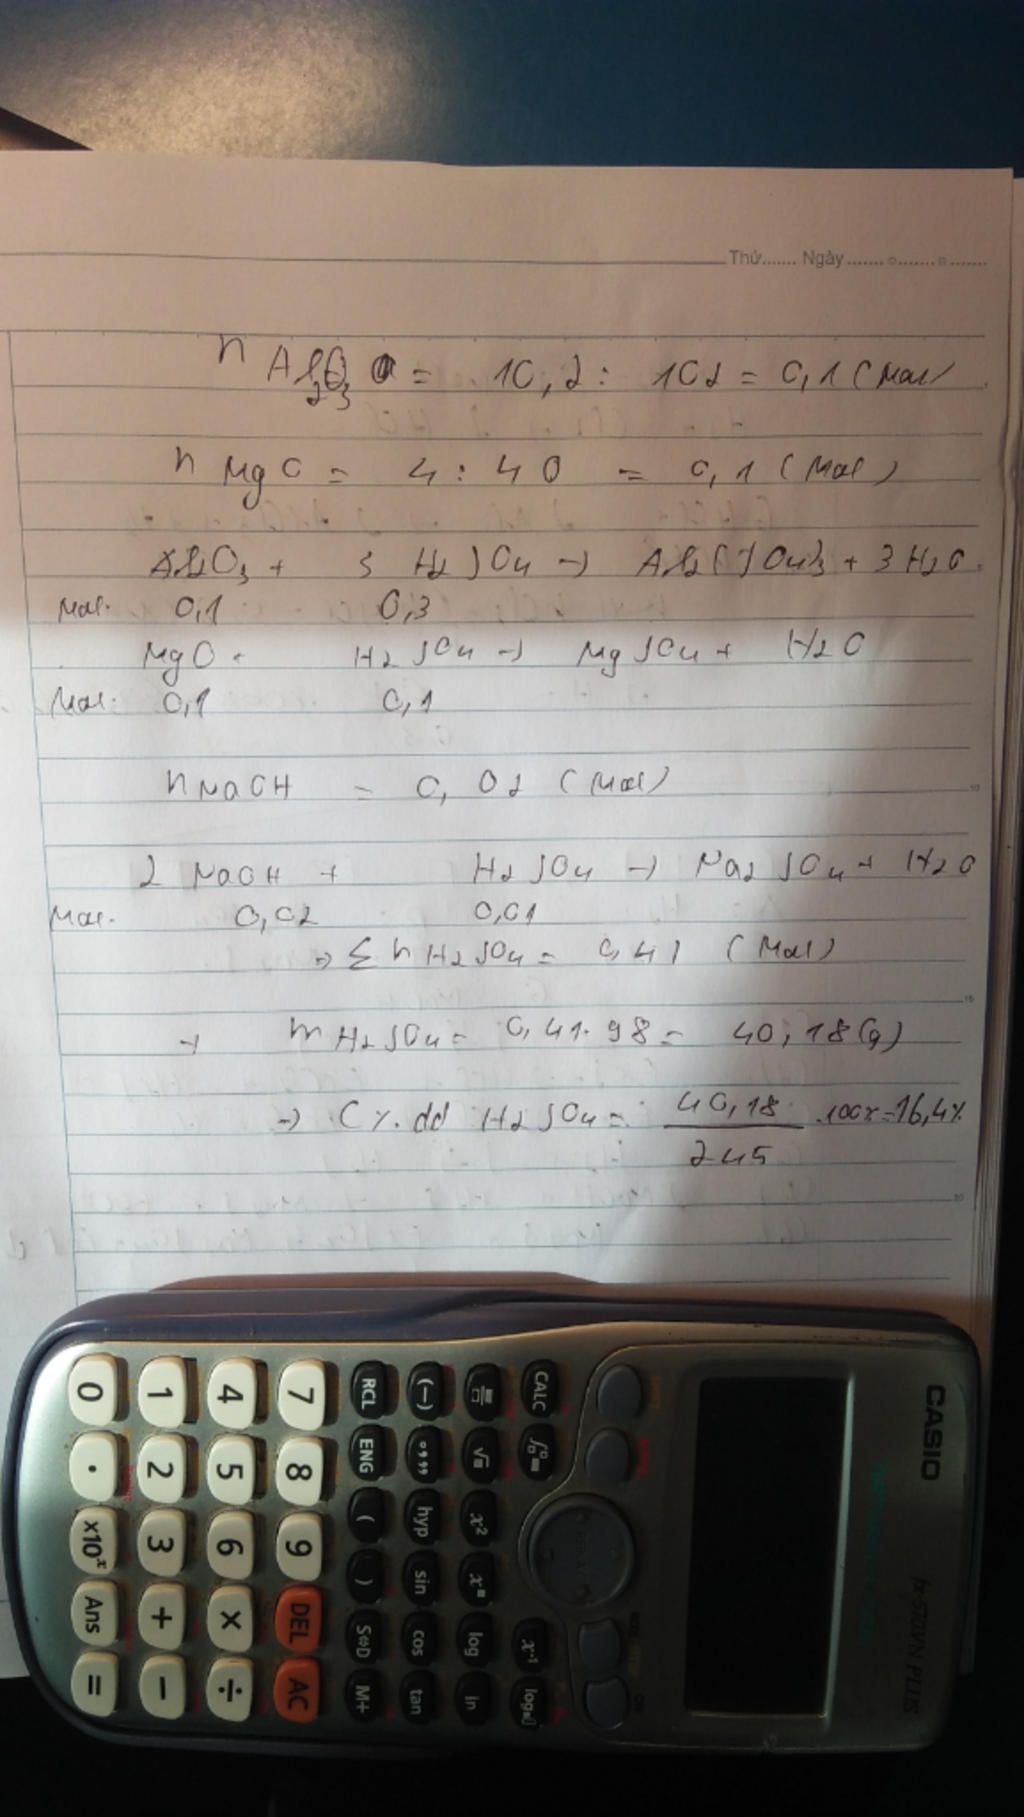 Thứ....... Ngày ....................
n Al2O3 = 10,2 : 102 = 0,1 (Mol)
n MgO = 4 : 40 = 0,1 (Mol)
Al2O3 + 3 H2SO4 → Al2(SO4)3 + 3 H2O
Mol. 0,1 0,3
MgO + H2SO4 → MgSO4 + H2O
Mol. 0,1 0,1
n NaOH = 0,02 (Mol)
2 NaOH + H2SO4 → Na2SO4 + H2O
Mol. 0,02 0,01
→ Σ n H2SO4 = 0,41 (Mol)
→ m H2SO4 = 0,41. 98 = 40,18 (g)
→ C%. dd H2SO4 = 40,18 / 245 .100% = 16,4%
CASIO
fx-570VN PLUS
CALC
x-1 log
√ x2 log ln
(-) hyp sin cos tan
RCL ENG ( ) S⇔D M+
7 8 9 DEL AC
4 5 6 × ÷
1 2 3 + −
0 . ×10x Ans =